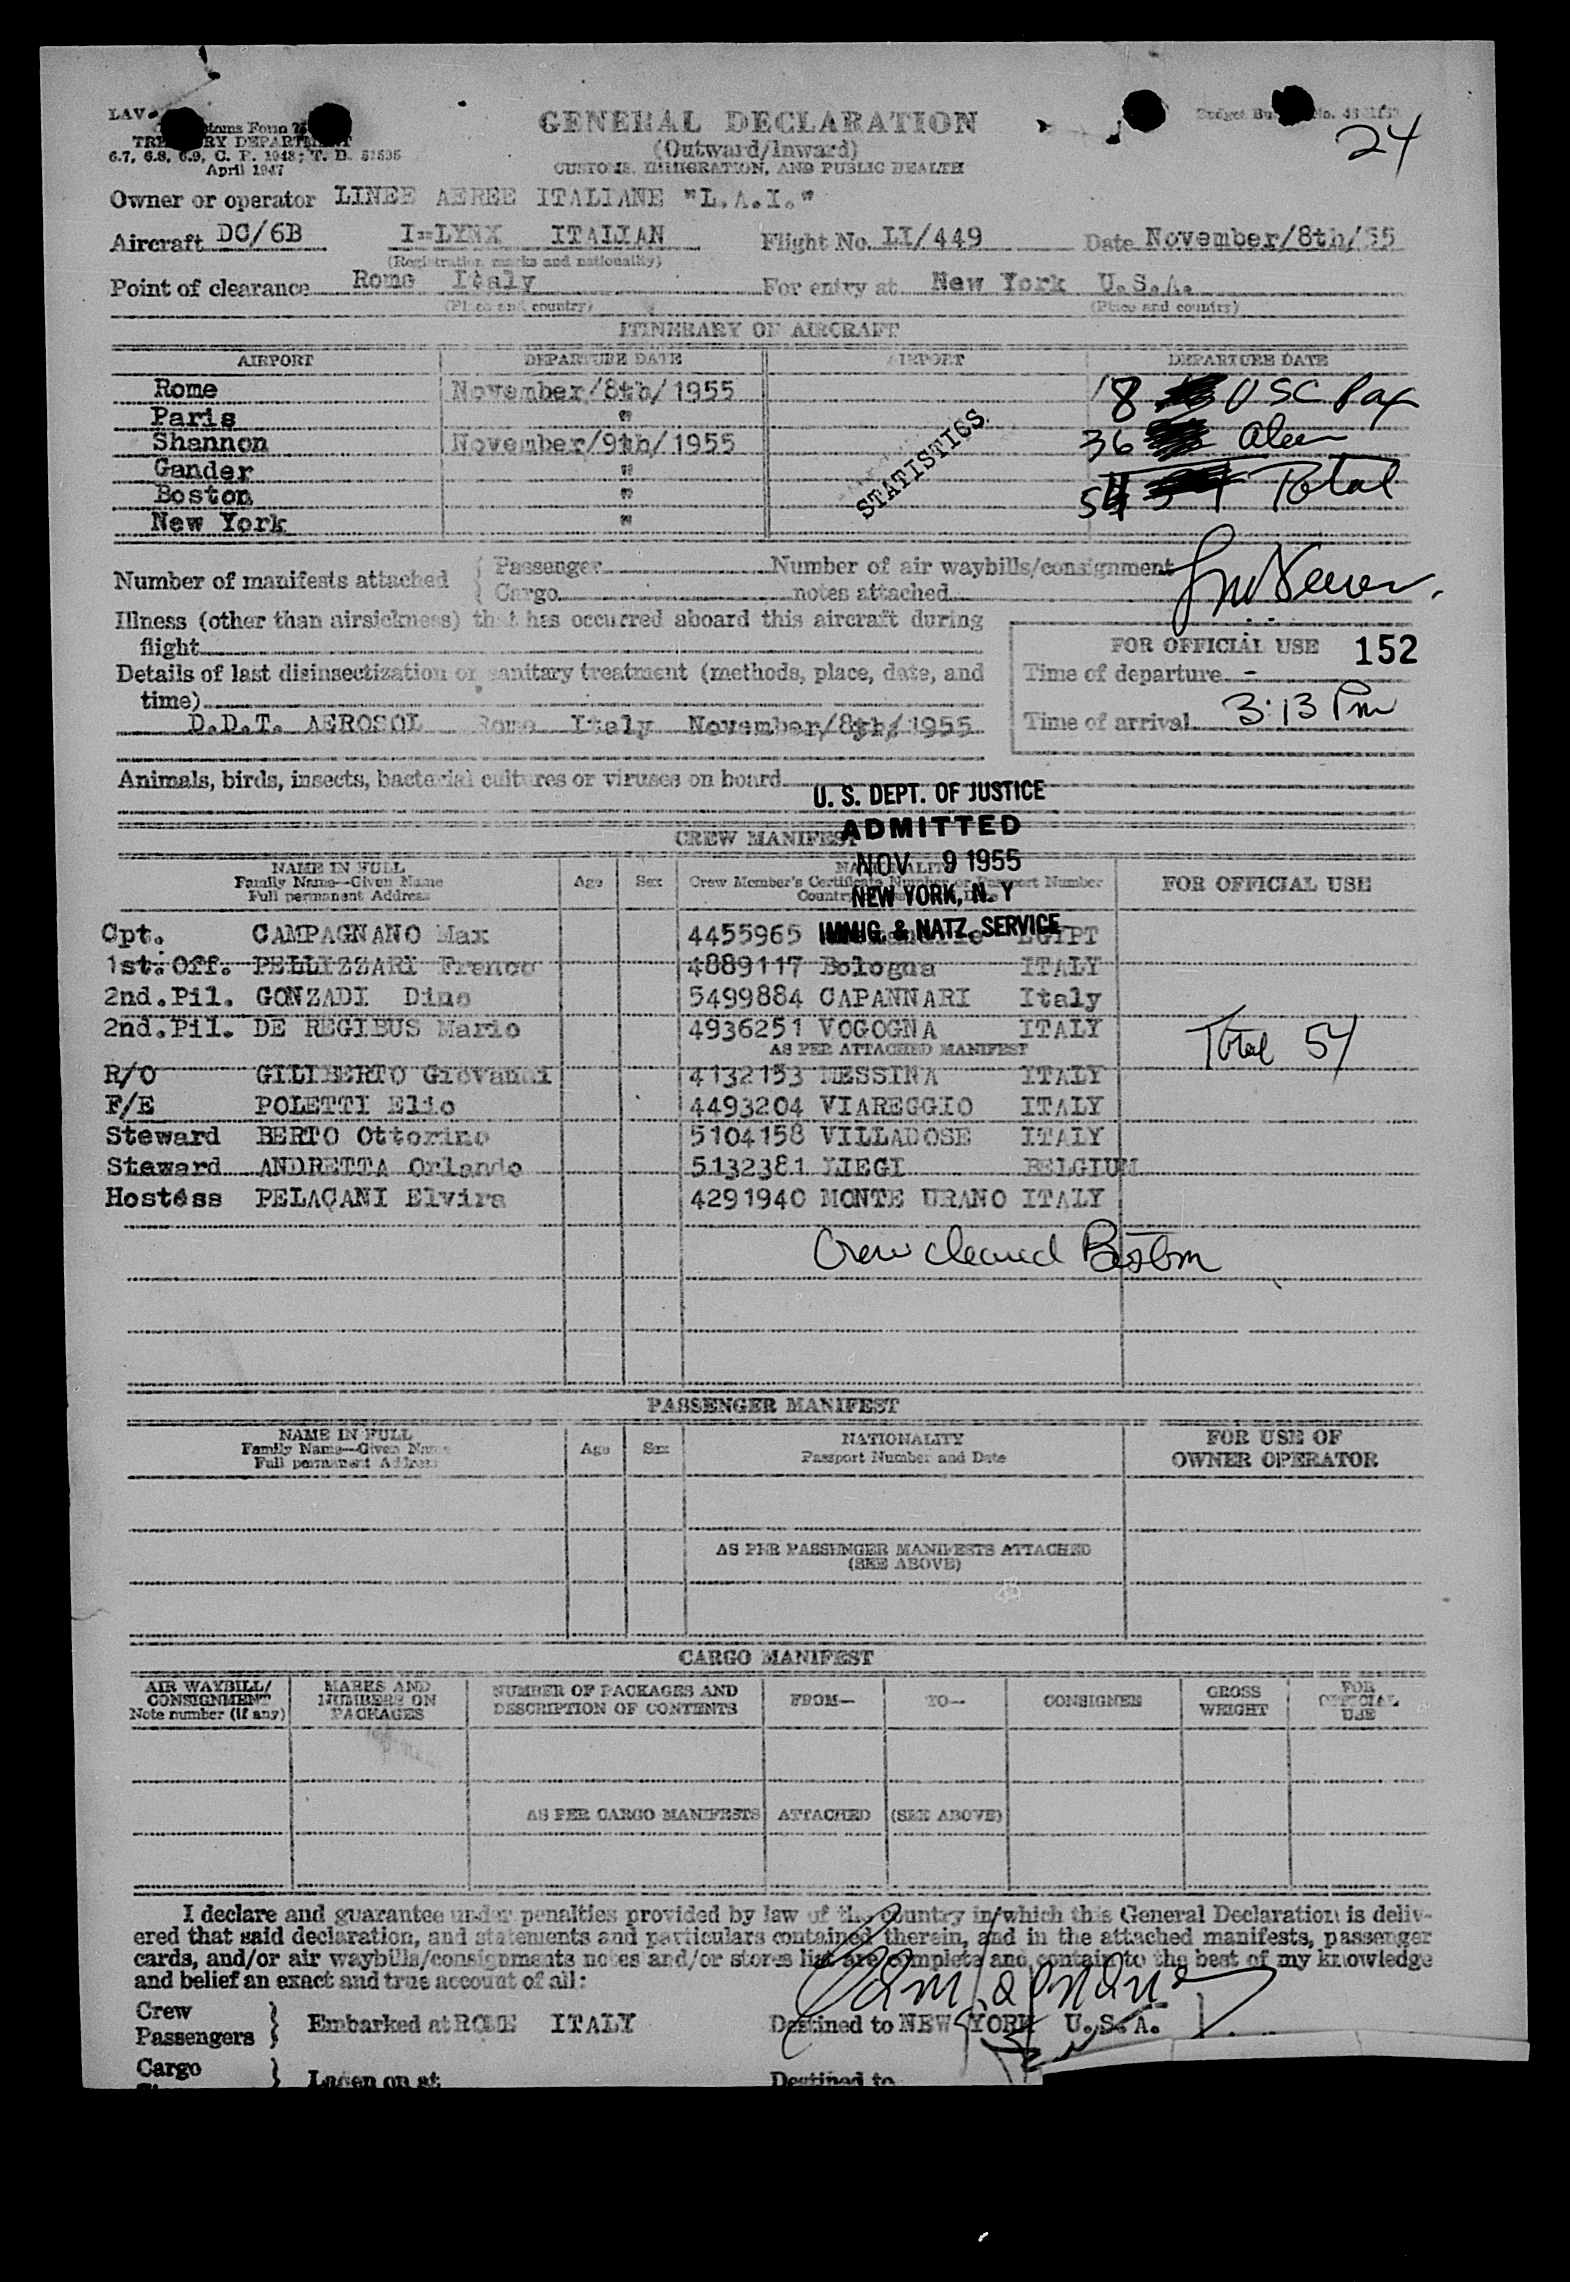 24
LAV
Customs Form
TREASURY DEPARTMENT
6.7, 6.8, 6.9, C. R. 1943; T. D. 51535
April 1947
GENERAL DECLARATION
(Outward/Inward)
CUSTOMS, IMMIGRATION, AND PUBLIC HEALTH
Owner or operator LINEE AEREE ITALIANE "L.A.I."
Aircraft DC/6B I=LYNX ITALIAN Flight No. LI/449 Date November/8th/55
(Registration marks and nationality)
Point of clearance Rome Italy For entry at New York U.S.A.
(Place and country) (Place and country)
ITINERARY OF AIRCRAFT
AIRPORT DEPARTURE DATE AIRPORT DEPARTURE DATE
Rome November/8th/1955 18 USC Pax
Paris "
Shannon November/9th/1955 36 alien
Gander "
Boston " 54 Total
New York "
STATISTICS
Number of manifests attached { Passenger Number of air waybills/consignment
Cargo notes attached
Illness (other than airsickness) that has occurred aboard this aircraft during
flight
FOR OFFICIAL USE 152
Details of last disinsectization or sanitary treatment (methods, place, date, and
time)
Time of departure -
D.D.T. AEROSOL Rome Italy November/8th/1955
Time of arrival 3:13 Pm
Animals, birds, insects, bacterial cultures or viruses on board
U. S. DEPT. OF JUSTICE
ADMITTED
NOV 9 1955
NEW YORK, N. Y
IMMIG. & NATZ. SERVICE
CREW MANIFEST
NAME IN FULL
Family Name—Given Name
Full permanent Address
Age Sex
NATIONALITY
Crew Member's Certificate Number or Passport Number
Country
FOR OFFICIAL USE
Cpt. CAMPAGNANO Max 4455965 EGYPT
1st. Off. PELLIZZARI Franco 4889117 Bologna ITALY
2nd.Pil. GONZADI Dino 5499884 CAPANNARI Italy
2nd.Pil. DE REGIBUS Mario 4936251 VOGOGNA ITALY
AS PER ATTACHED MANIFEST
Total 54
R/O GILIBERTO Giovanni 4132153 MESSINA ITALY
F/E POLETTI Elio 4493204 VIAREGGIO ITALY
Steward BERTO Ottorino 5104158 VILLADOSE ITALY
Steward ANDRETTA Orlando 5132381 LIEGI BELGIUM
Hostess PELACANI Elvira 4291940 MONTE URANO ITALY
Crew cleared Boston
PASSENGER MANIFEST
NAME IN FULL
Family Name—Given Name
Full permanent Address
Age Sex
NATIONALITY
Passport Number and Date
FOR USE OF
OWNER OPERATOR
AS PER PASSENGER MANIFESTS ATTACHED
(SEE ABOVE)
CARGO MANIFEST
AIR WAYBILL/
CONSIGNMENT
Note number (if any)
MARKS AND
NUMBERS ON
PACKAGES
NUMBER OF PACKAGES AND
DESCRIPTION OF CONTENTS
FROM— TO— CONSIGNEE
GROSS
WEIGHT
FOR
OFFICIAL
USE
AS PER CARGO MANIFESTS ATTACHED (SEE ABOVE)
I declare and guarantee under penalties provided by law of the country in which this General Declaration is deliv-
ered that said declaration, and statements and particulars contained therein, and in the attached manifests, passenger
cards, and/or air waybills/consignments notes and/or stores list are complete and contain to the best of my knowledge
and belief an exact and true account of all:
Crew
Passengers } Embarked at ROME ITALY Destined to NEW YORK U.S.A.
Cargo } Laden on at Destined to